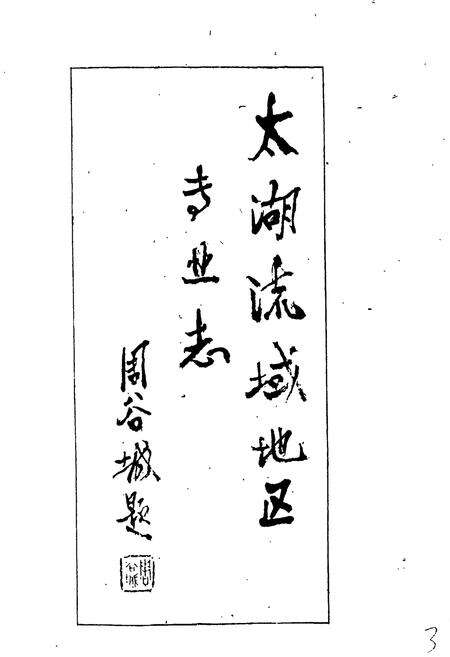 太湖流域地区
专业志
周谷城题
3